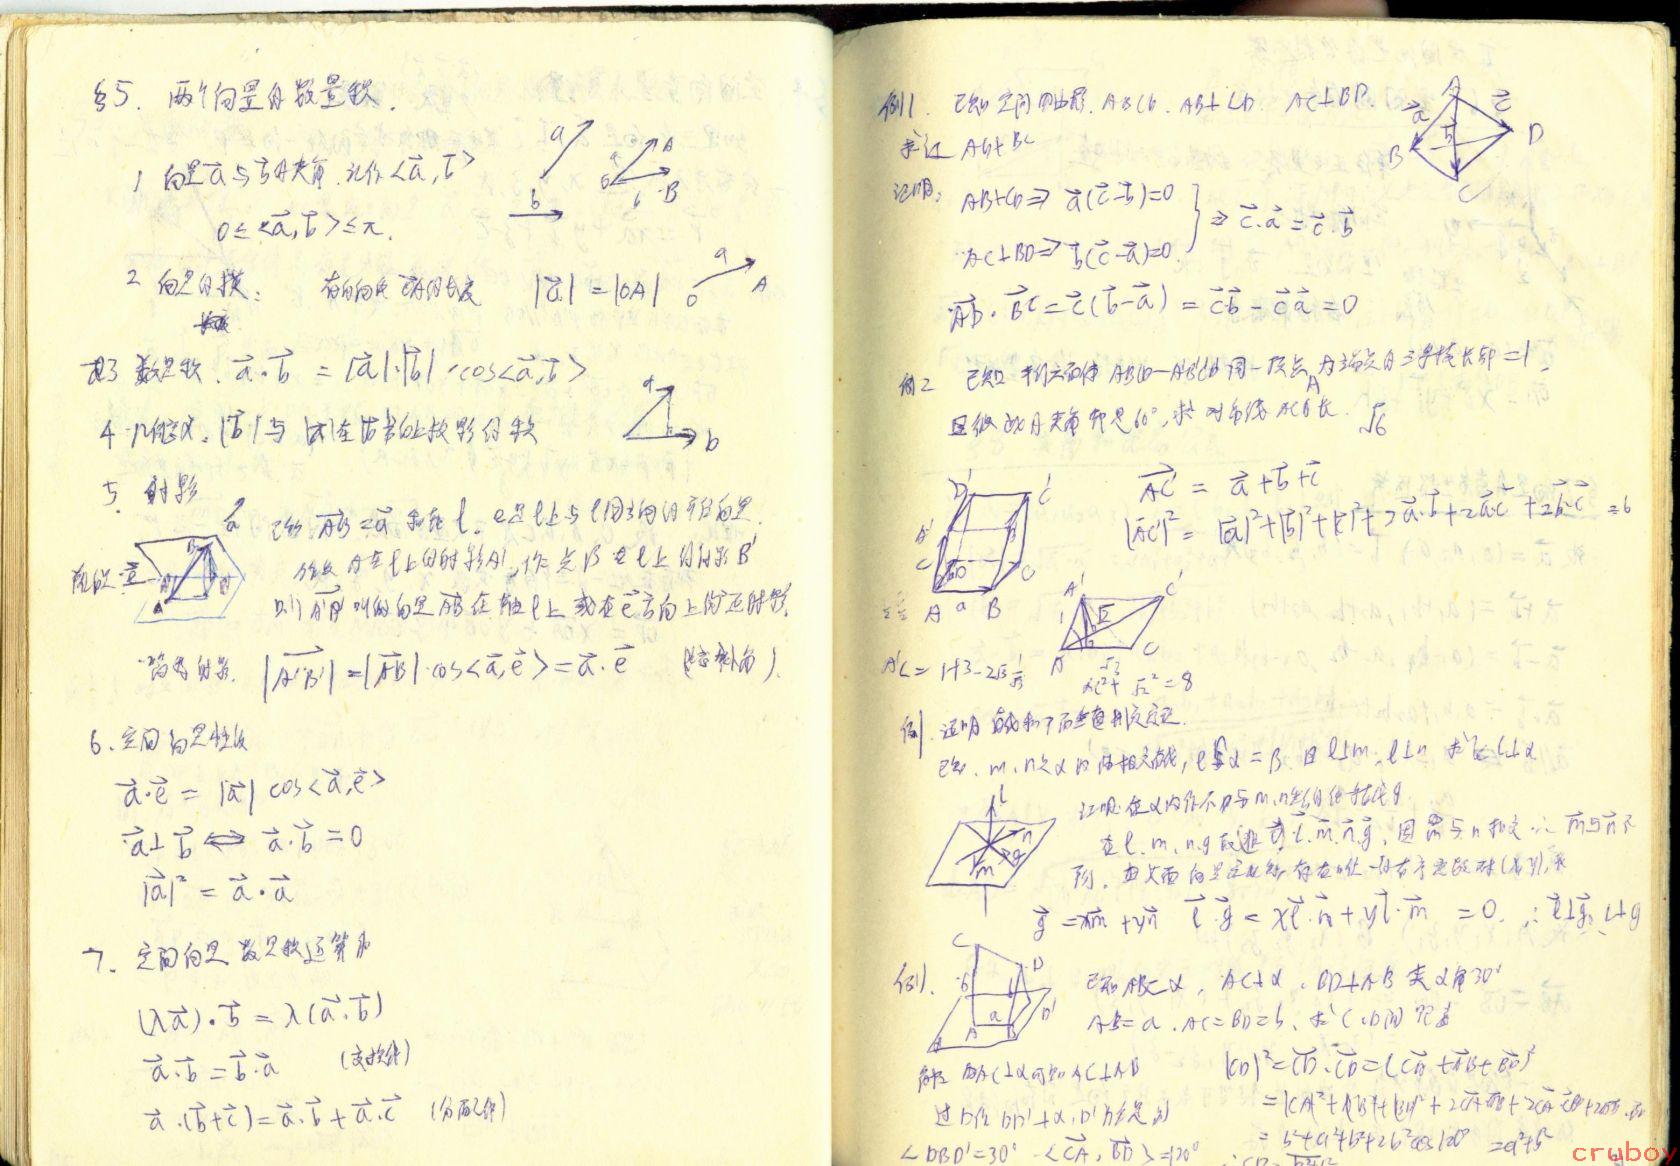 §5. 两个向量的数量积.
1 向量a⃗与b⃗的夹角.记作<a⃗,b⃗>
0≤<a⃗,b⃗>≤π.
2 向量的模: 有向线段OA的长度 |a⃗|=|OA|
3 数量积. a⃗·b⃗ = |a⃗|·|b⃗|·cos<a⃗,b⃗>
4 几何意义. |b⃗|与|a⃗|在b⃗方向上投影的积
5. 射影
已知 AB⃗=a⃗ 和轴 l. e是l上与l同方向的单位向量.
作点A在l上的射影A', 作点B在l上的射影B'
则A'B'叫做向量AB在轴l上或在e⃗方向上的正射影.
|A'B'⃗|=|AB⃗|·cos<a⃗,e⃗>=a⃗·e⃗
6. 空间向量性质
a⃗·e⃗ = |a⃗| cos<a⃗,e⃗>
a⃗⊥b⃗ ⟺ a⃗·b⃗=0
|a⃗|² = a⃗·a⃗
7. 空间向量数量积运算律
(λa⃗)·b⃗ = λ(a⃗·b⃗)
a⃗·b⃗=b⃗·a⃗ (交换律)
a⃗·(b⃗+c⃗)=a⃗·b⃗+a⃗·c⃗ (分配律)
例1. 已知空间四边形.ABCD. AB⊥CD AC⊥BD.
求证 AD⊥BC
证明: AB⊥CD⇒ a⃗(c⃗-b⃗)=0
AC⊥BD⇒ b⃗(c⃗-a⃗)=0
⇒ c⃗·a⃗=c⃗·b⃗
AD⃗·BC⃗=c⃗(b⃗-a⃗)=c⃗b⃗-c⃗a⃗=0
例2 已知平行六面体ABCD-A'B'C'D'同一顶点A为端点的三条棱长都=1,
且彼此的夹角都是60°,求对角线AC'的长. √6
AC'⃗ = a⃗+b⃗+c⃗
|AC'|² = |a⃗|²+|b⃗|²+|c⃗|²+2a⃗·b⃗+2a⃗·c⃗+2b⃗·c⃗ =6
例. 证明直线和平面垂直判定定理.
已知. m,n是α内两相交直线, l∩α=B 且l⊥m, l⊥n 求证l⊥α
证明:在α内作不与m,n重合的任一直线g
在l.m.n.g上取 l⃗.m⃗.n⃗.g⃗, 因m与n相交 ∴ m⃗与n⃗不
平行. 由共面向量定理可知存在唯一的有序实数对(x,y),使
g⃗=xm⃗+yn⃗ l⃗·g⃗=xl⃗·n⃗+yl⃗·m⃗ =0. ∴l⃗⊥g⃗. l⊥g
例. 已知AB⊂α, AC⊥α, BD⊥AB 夹α角30°
AB=a. AC=BD=b. 求C,D间距离
解: 由AC⊥α可知AC⊥AB
过D作DD'⊥α, D'为垂足
∠DBD'=30° <CA⃗,BD⃗>=120°
|CD|²=CD⃗·CD⃗=(CA⃗+AB⃗+BD⃗)²
=b²+a²+b²+2b²cos120° =a²+b²
cruboy